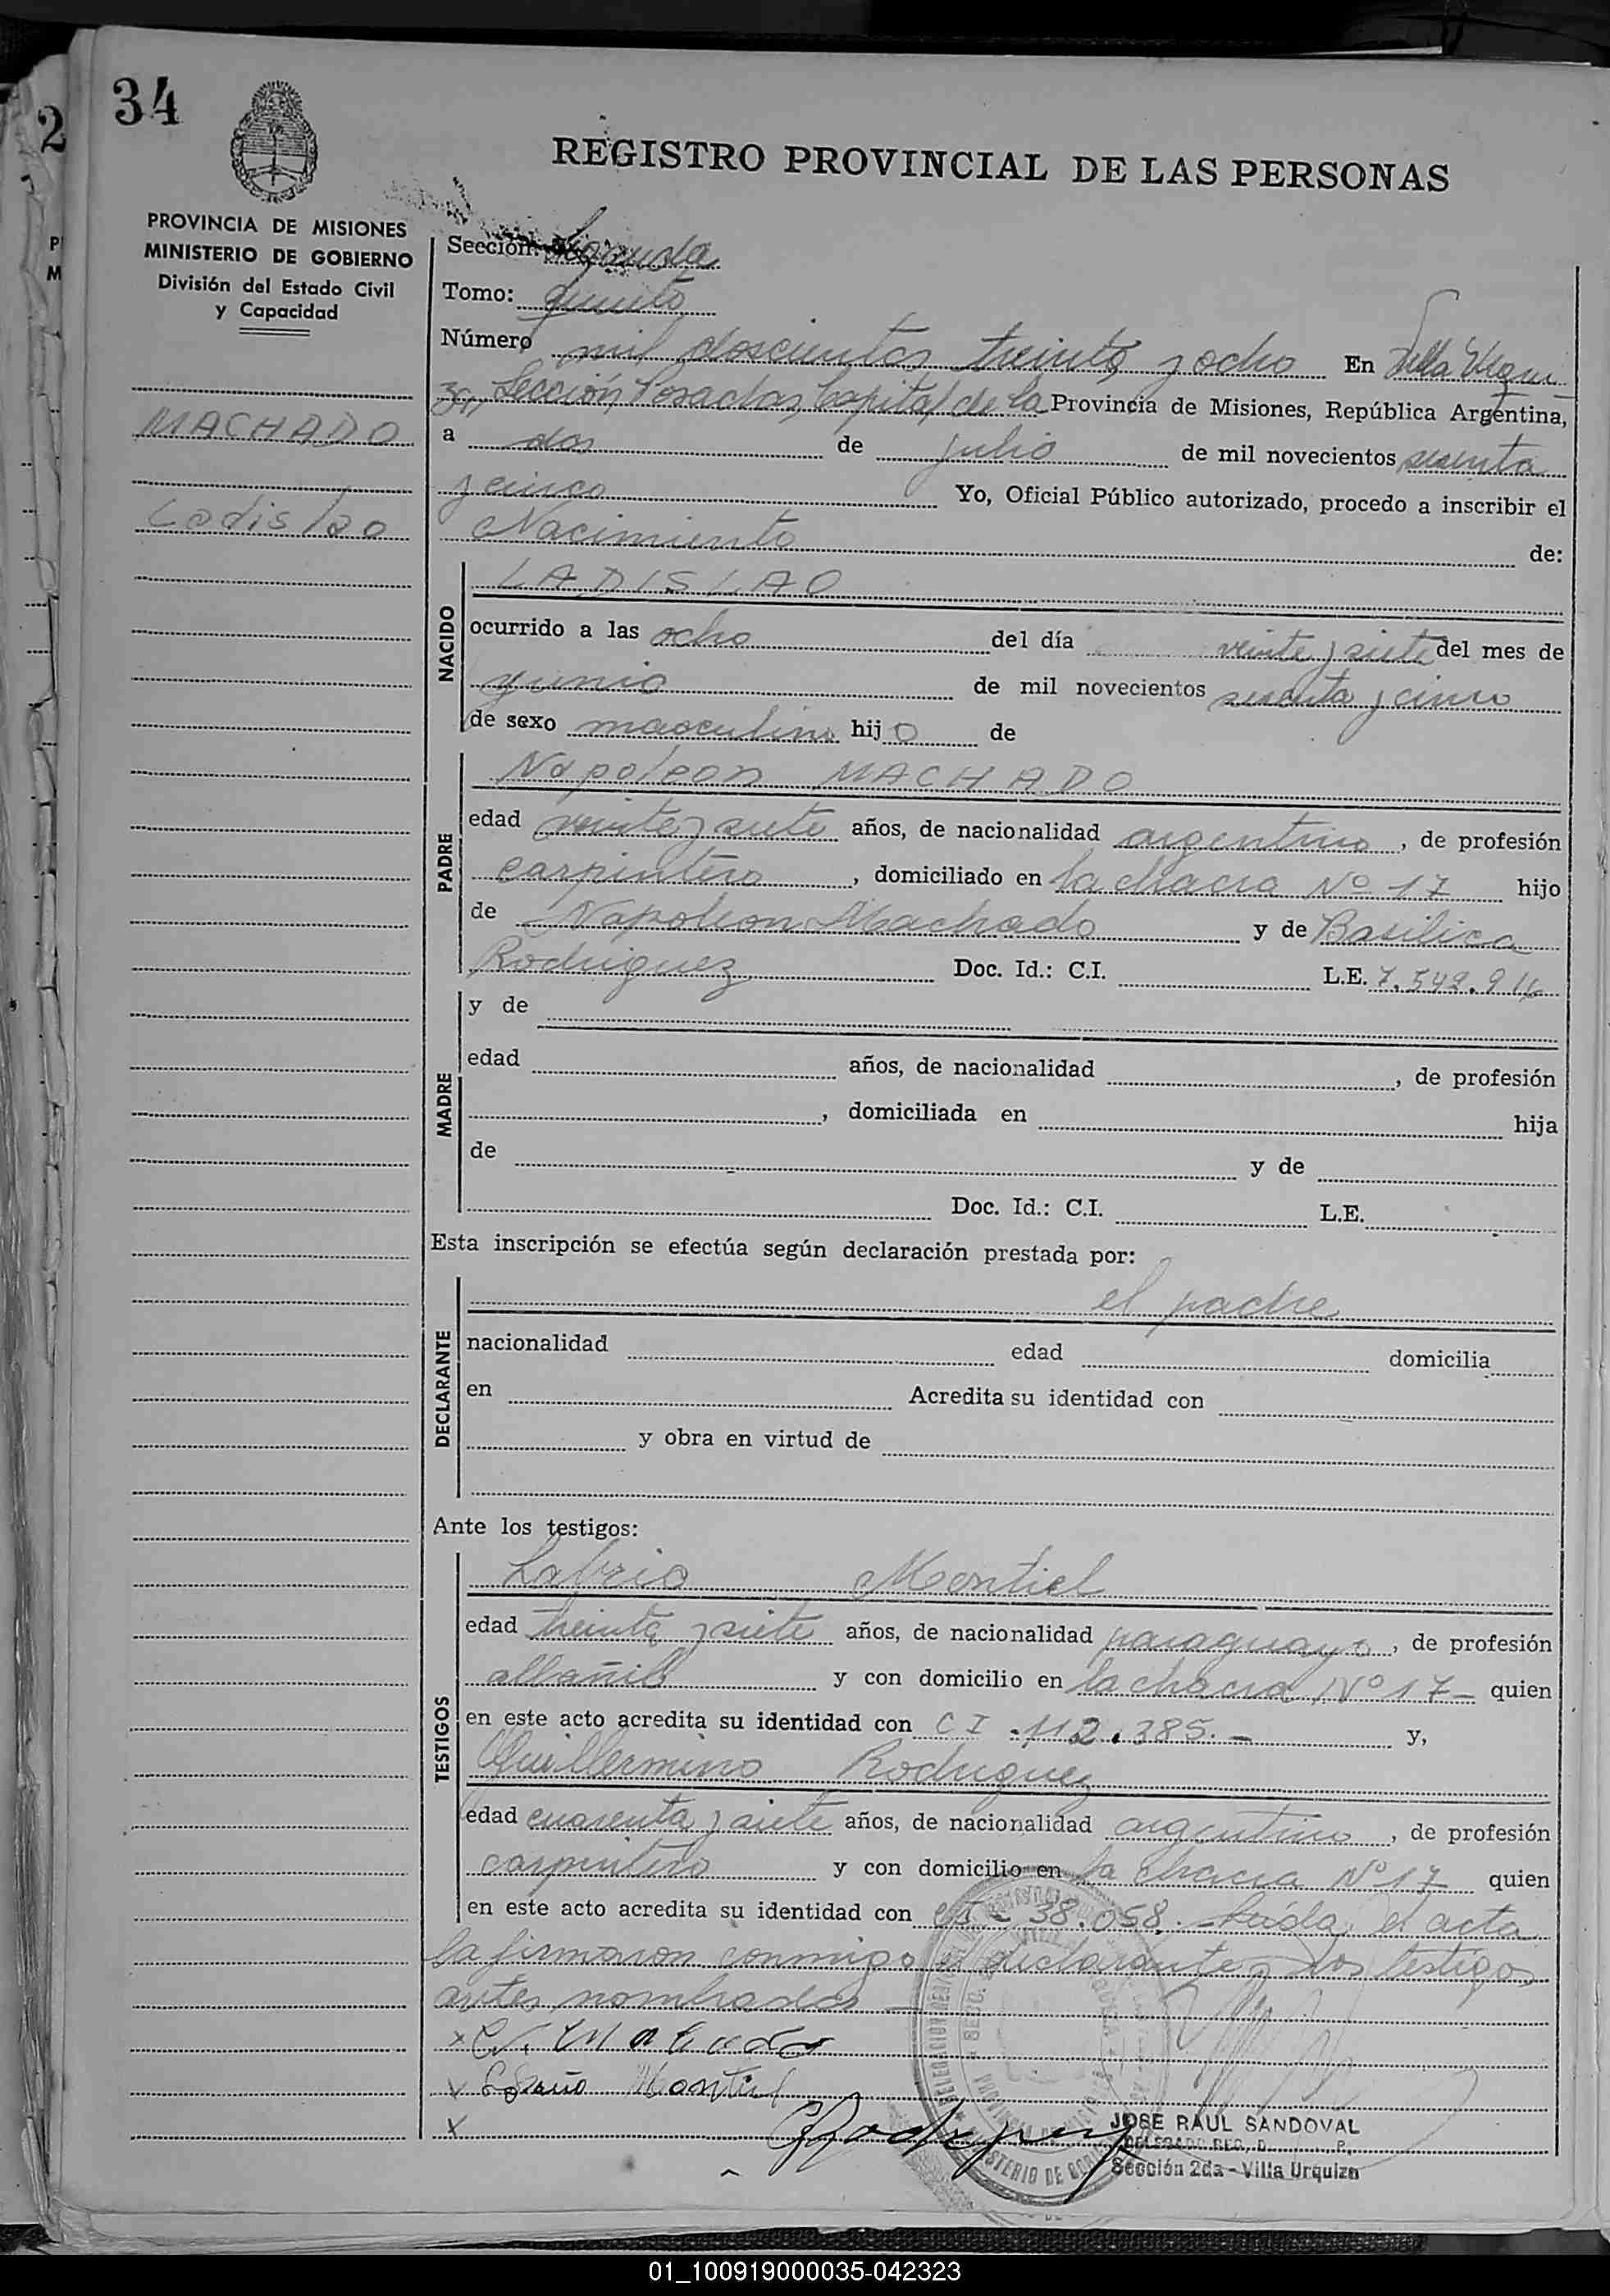 34
2
REGISTRO PROVINCIAL DE LAS PERSONAS
PROVINCIA DE MISIONES
MINISTERIO DE GOBIERNO
División del Estado Civil
y Capacidad
MACHADO
Ladislao
Sección: Segunda
Tomo: quinto
Número mil doscientos treinta y ocho En Villa Urqui
za, Sección, Posadas, Capital de la Provincia de Misiones, República Argentina,
a dos de julio de mil novecientos sesenta
y cinco Yo, Oficial Público autorizado, procedo a inscribir el
Nacimiento de:
NACIDO
LADISLAO
ocurrido a las ocho del día veinte y siete del mes de
junio de mil novecientos sesenta y cinco
de sexo masculino hijo de
PADRE
Napoleon MACHADO
edad veinte y siete años, de nacionalidad argentino, de profesión
carpintero, domiciliado en la chacra Nº 17 hijo
de Napoleon Machado y de Basilica
Rodriguez Doc. Id.: C.I. L.E. 7.542.914
MADRE
y de
edad años, de nacionalidad , de profesión
, domiciliada en hija
de y de
Doc. Id.: C.I. L.E.
Esta inscripción se efectúa según declaración prestada por:
DECLARANTE
el padre
nacionalidad edad domicilia
en Acredita su identidad con
y obra en virtud de
Ante los testigos:
TESTIGOS
Montiel
edad treinta y siete años, de nacionalidad paraguayo, de profesión
albañil y con domicilio en la chacra Nº 17- quien
en este acto acredita su identidad con C I -112.385.- y,
Guillermino Rodriguez
edad cuarenta y siete años, de nacionalidad argentino, de profesión
carpintero y con domicilio en la chacra Nº 17 quien
en este acto acredita su identidad con CI - 38.058.- Leída el acta
la firmaron conmigo el declarante y los testigos
antes nombrados
x Machado
x Montiel
x GRodriguez
JOSE RAUL SANDOVAL
DELEGADO REG. P.
Sección 2da - Villa Urquiza
01_100919000035-042323